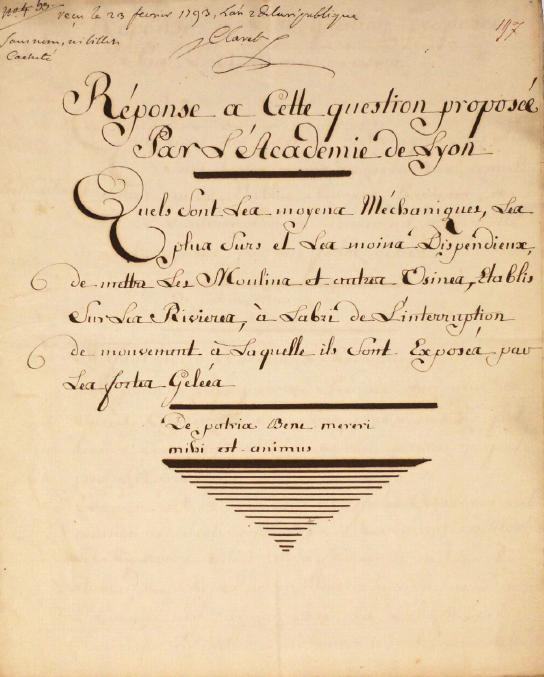 no. 4.
reçu le 23 fevrier 1793, L'an 2 de la republique
197
Sans nom, ni billet
Cacheté
Claret
Réponse a Cette question proposée
Par L'Académie de Lyon
Quels sont Les moyens Méchaniques, Les
plus surs et Les moins Dispendieux,
de mettre Les Moulins et autres Usines, Etablis
Sur Les Rivieres, à L'abri de L'interruption
de mouvement à Laquelle ils sont Exposés par
Les fortes Gelées
De patria Bene mereri
mihi est animus